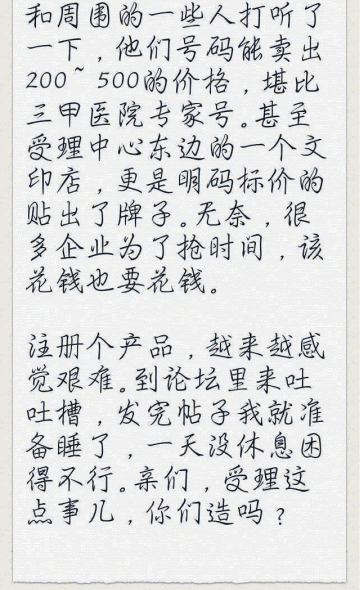 和周围的一些人打听了
一下，他们号码能卖出
200~500的价格，堪比
三甲医院专家号。甚至
受理中心东边的一个文
印店，更是明码标价的
贴出了牌子。无奈，很
多企业为了抢时间，该
花钱也要花钱。
注册个产品，越来越感
觉艰难。到论坛里来吐
吐槽，发完帖子我就准
备睡了，一天没休息困
得不行。亲们，受理这
点事儿，你们造吗？